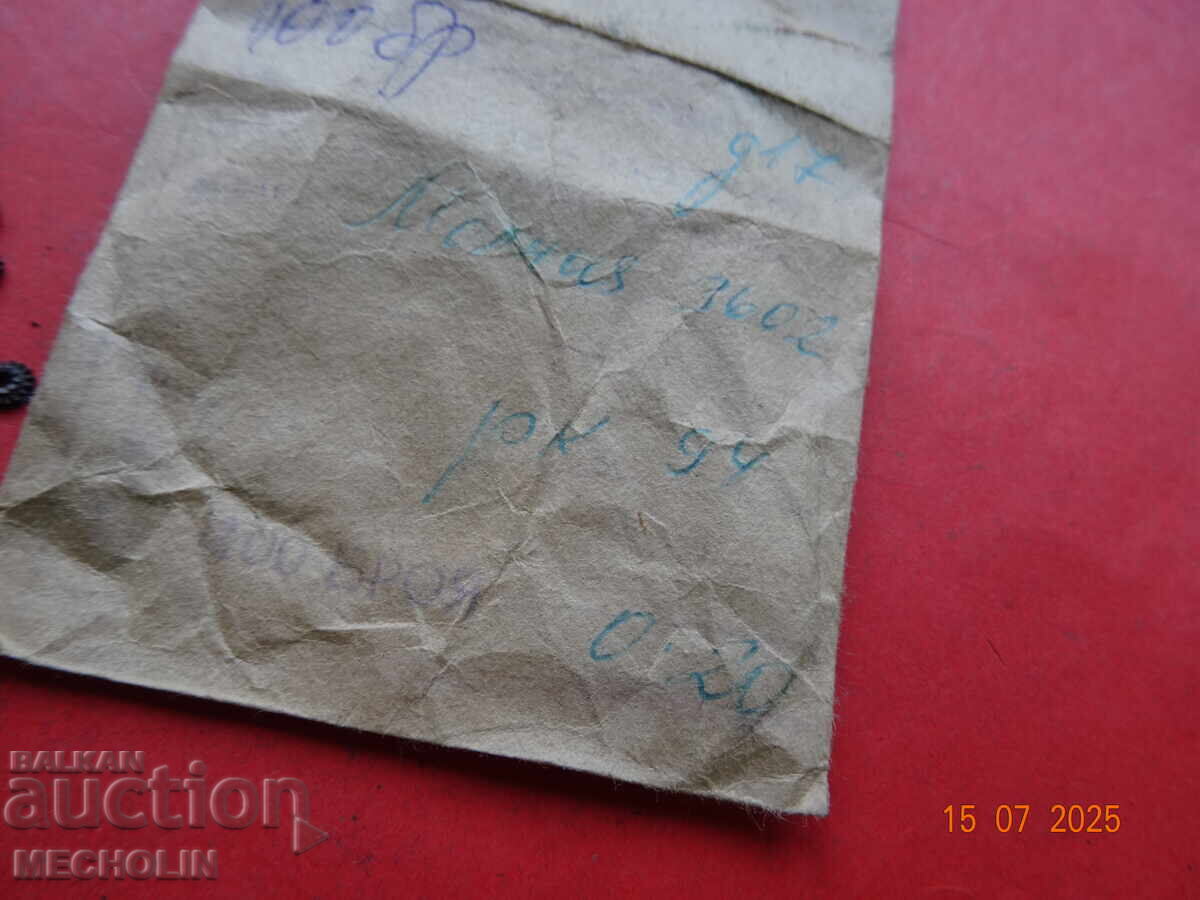 100 бр
Молния 3602
рк 54
100 броя
0.20
BALKAN
auction
MECHOLIN
15 07 2025